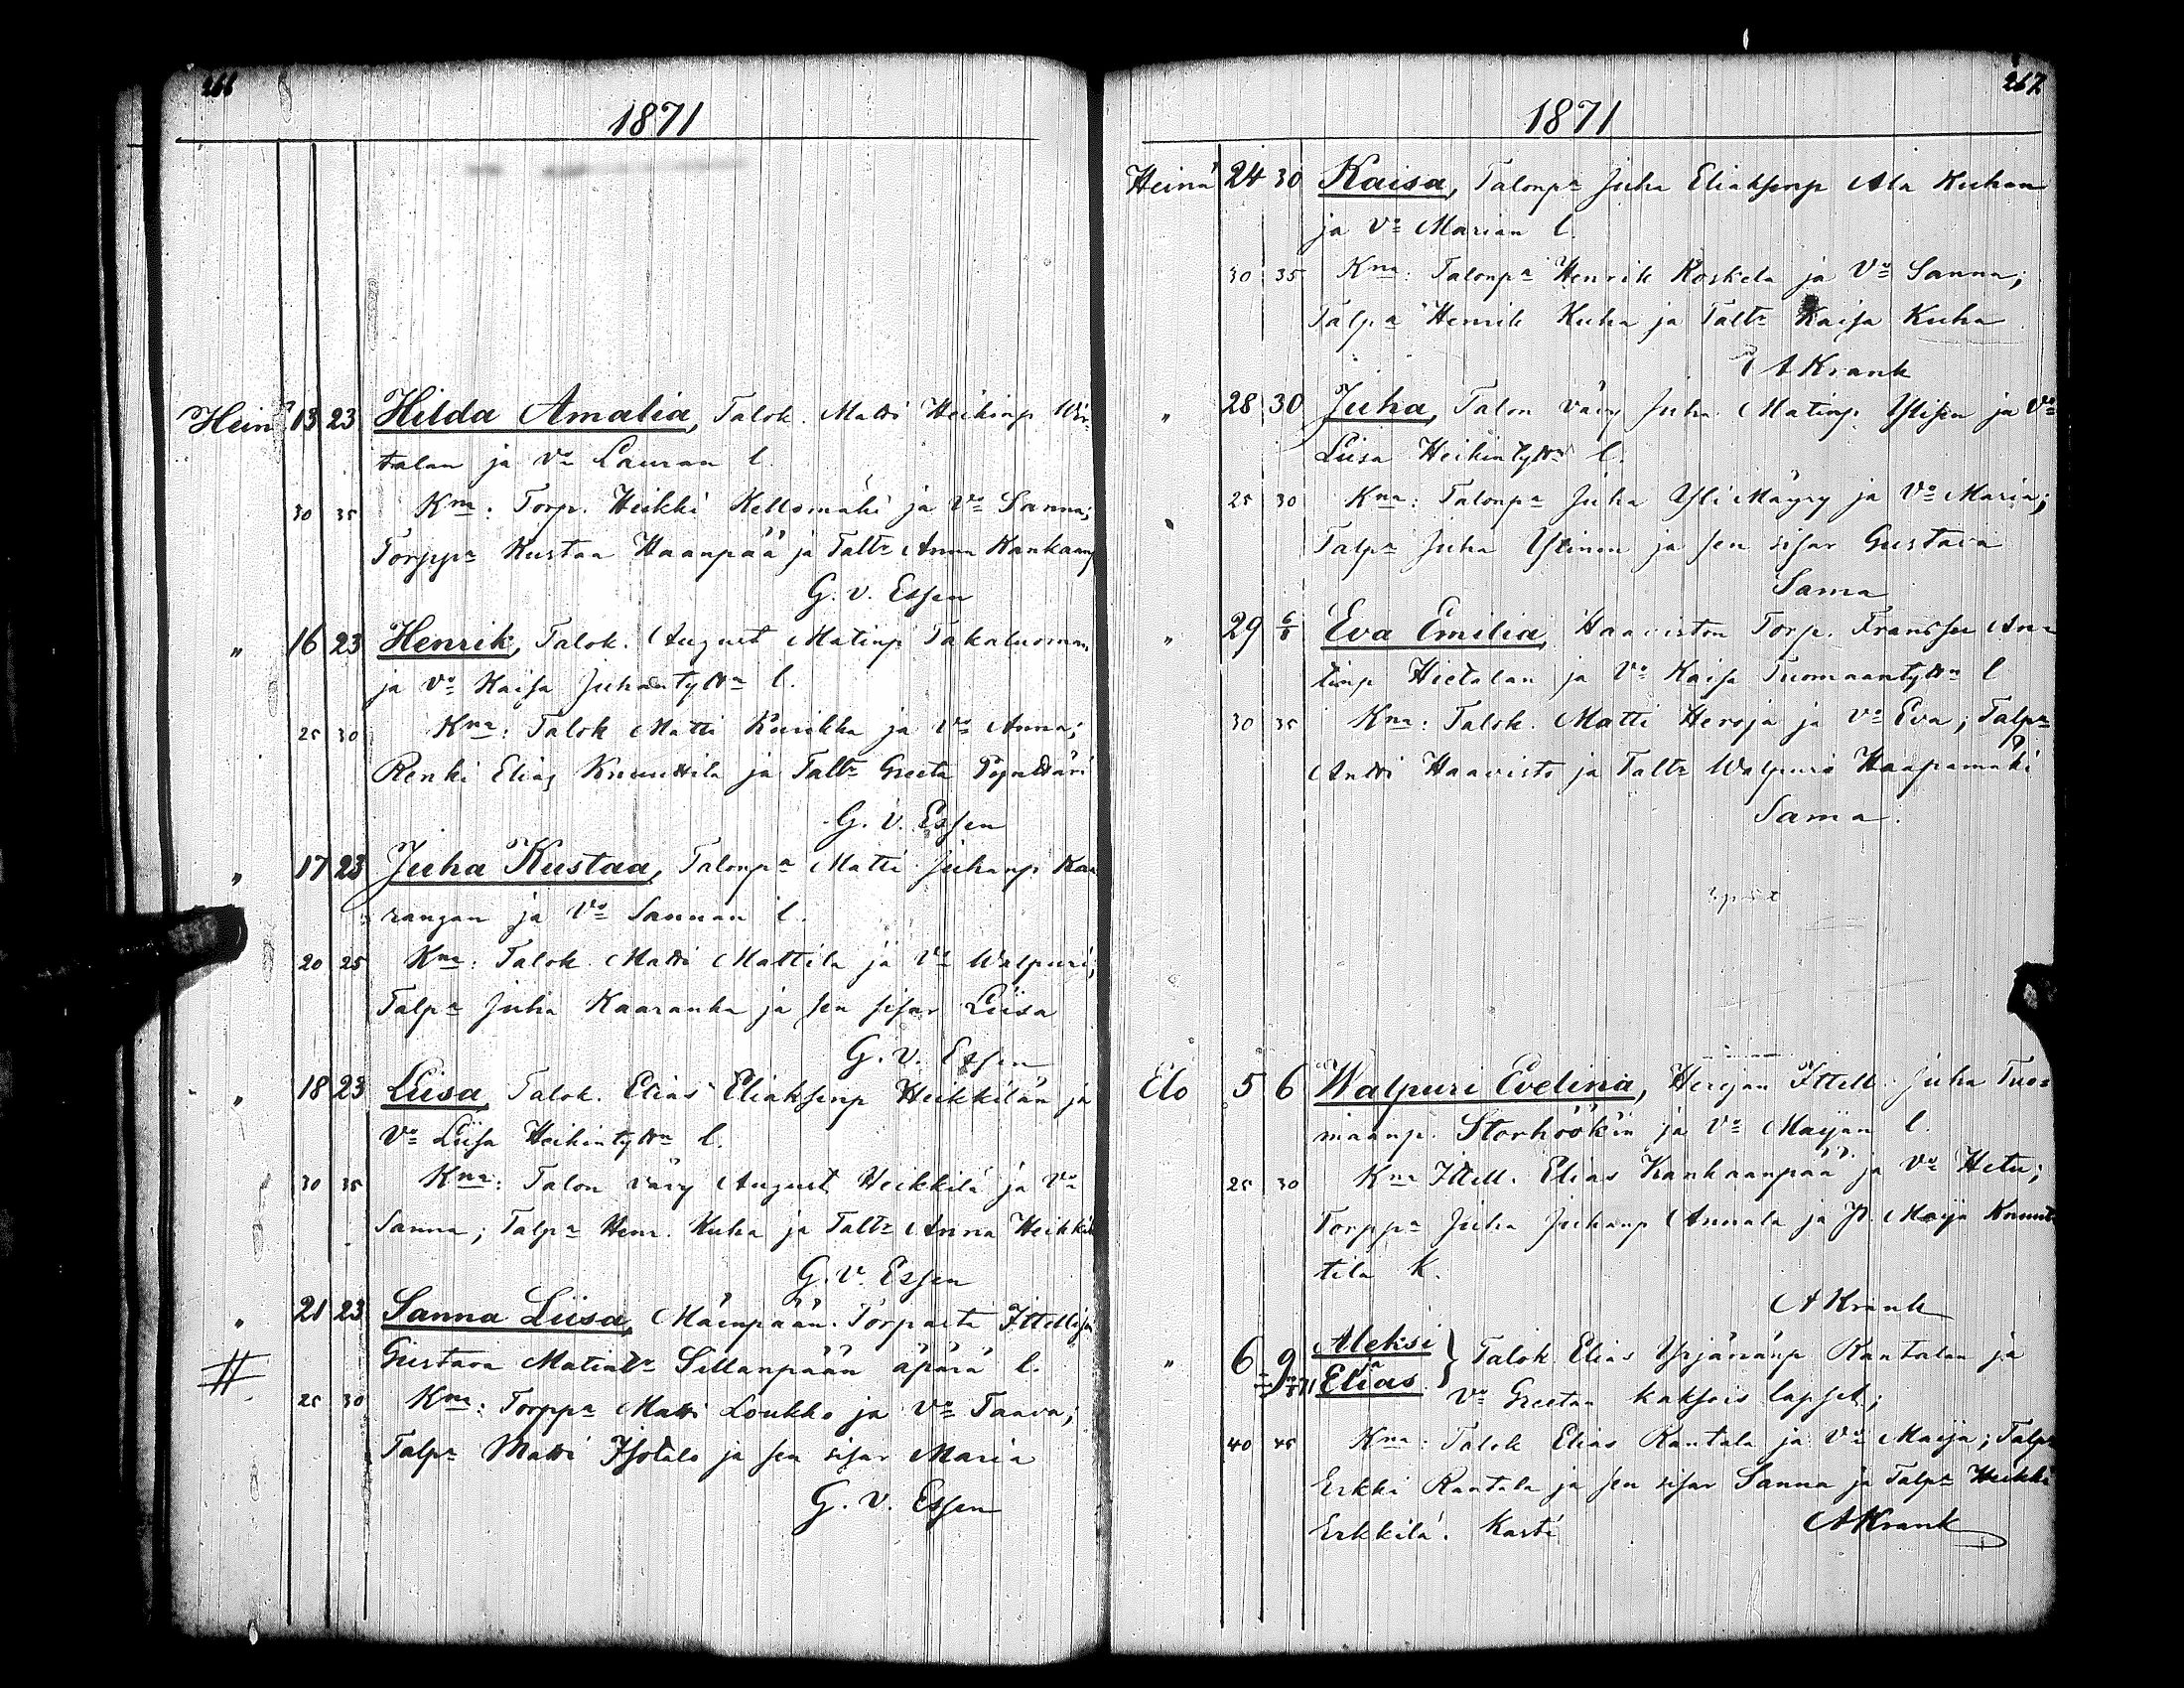 266
1871
Heinä 13 23 Hilda Amalia, Talok. Matti Heikinp. Wir-
talan ja Vo Lauran l.
30 35 Kna: Torp. Heikki Kellomäki ja Vo Sanna;
Torppa Kustaa Haanpää ja Taltr Anna Kankaanp
G. v. Essen
" 16 23 Henrik, Talok. August Matinp Takaluoman
ja Vo Kaisa Juhantyttn l.
25 30 Kna: Talok Matti Kurikka ja Vo Anna;
Renki Elias Knuuttila ja Taltr Greeta
G. v. Essen
" 17 23 Juha Kustaa, Talonpa Matti Juhanp. Kaa
rangan ja Vo Sannan l.
20 25 Kna: Talok. Matti Mattila ja Vo Walpuri;
Talpa Juha Kaaranka ja sen sisar Liisa
G. v. Essen
" 18 23 Liisa, Talok. Elias Eliaksenp Heikkilän ja
Vo Liisa Heikintyttn l.
30 35 Kna: Talon vävy August Heikkilä ja Vo
Sanna; Talpa Henr. Kuha ja Taltr Anna Heikkil
G. v. Essen
" 21 23 Sanna Liisa, Mäenpään Torpasta Ittellisen
# Gustava Matintr Sillanpään äpärä l.
25 30 Kna: Torppa Matti Loukko ja Vo Taava;
Talpa Matti Isotalo ja sen sisar Maria
G. v. Essen
267
1871
Heinä 24 30 Kaisa, Talonpa Juha Eliaksenp Ala Kuhan
ja Vo Marian l.
30 35 Kna: Talonpa Henrik Koskela ja Vo Sanna;
Talpa Henrik Kuha ja Taltr Kaisa Kuha
A Krank
" 28 30 Juha, Talon vävy Juha Matinp. Ylisen ja Vo
Liisa Heikintyttn l.
25 30 Kna: Talonpa Juha Yli Mäyry ja Vo Maria;
Talpa Juha Ylinen ja sen sisar Gustava
Sama
" 29 6/8 Eva Emilia, Haaviston Torp. Franssu An-
tinp Hietalan ja Vo Kaisa Tuomaantyttn l
30 35 Kna: Talok. Matti Heroja ja Vo Eva; Talpa
Antti Haavisto ja Taltr Walpuri Haapamäki
Sama.
Elo 5 6 Walpuri Evelina, Herojan Ittell. Juha Tuo-
maanp. Storhöökin ja Vo Maijan l.
25 30 Kna Ittell. Elias Kankaanpää ja Vo Hetu;
Torppa Juha Juhanp Annala ja P. Maija Knuut
tila k.
A Krank
" 6 9 Aleksi } Talok Elias Yrjänänp Rantalan ja
Elias } Vo Greetan kaksois lapset;
40 45 Kna: Talok Elias Rantala ja Vo Maija; Talpa
Erkki Rantala ja sen sisar Sanna ja Talpa Heikki
Erkkilä. Kasti A Krank